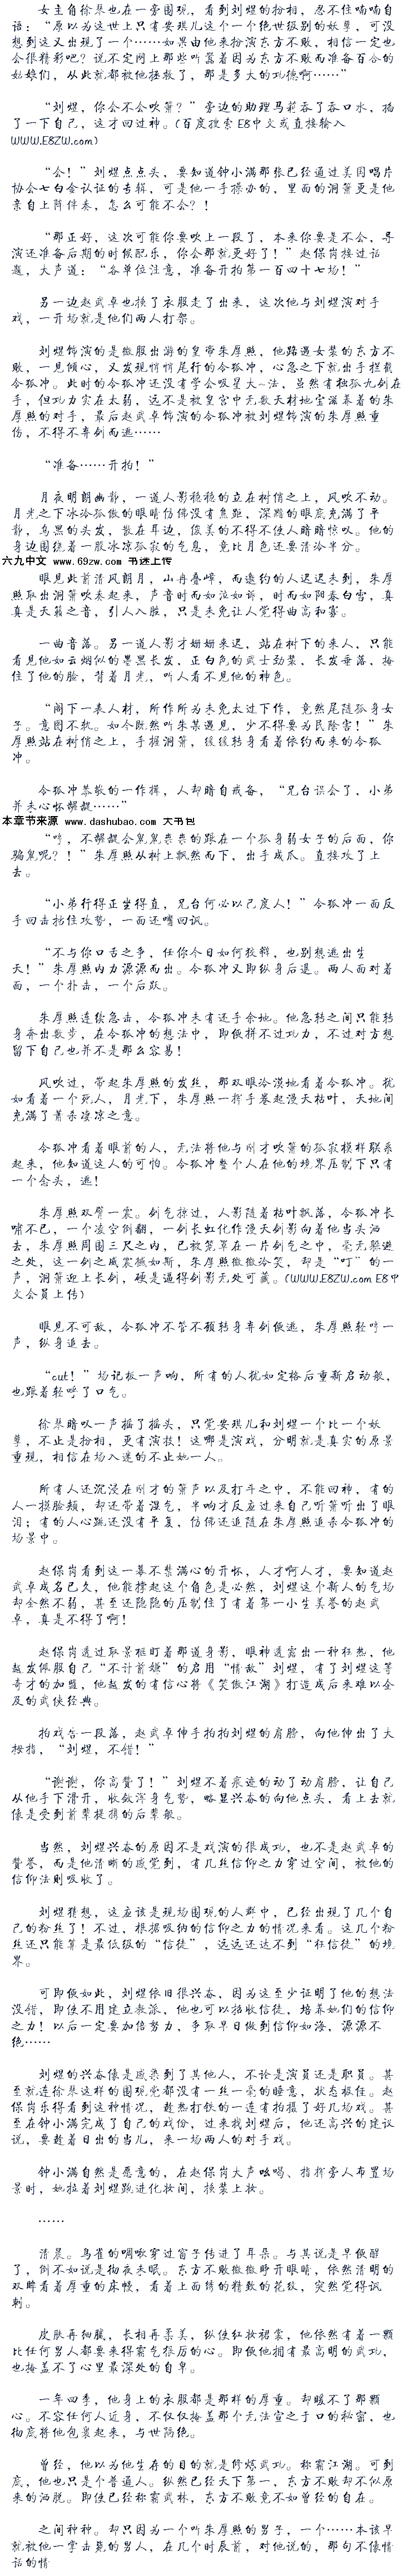 女主角徐琴也在一旁围观，看到刘煜的扮相，忍不住喃喃自
语：“原以为这世上只有安琪儿这个一个绝世级别的妖孽，可没
想到这又出现了一个……如果由他来扮演东方不败，相信一定也
会很精彩吧？说不定网上那些听嚣着因为东方不败而准备百合的
姑娘们，从此就都被他拯救了，那是多大的功德啊……”
“刘煜，你会不会吹箫？”旁边的助理马莉吞了吞口水，掐
了一下自己，这才回过神。(百度搜索 E8中文或直接输入
WWW.E8ZW.com)
“会！”刘煜点点头，要知道钟小满那张已经通过美国唱片
协会七白金认证的专辑，可是他一手操办的，里面的洞箫更是他
亲自上阵伴奏，怎么可能不会？！
“那正好，这次可能你要吹上一段了，本来你要是不会，导
演还准备后期的时候配乐，你会那就更好了！”赵保岗接过话
题，大声道：“各单位注意，准备开拍第一百四十七场！”
另一边赵武卓也换了衣服走了出来，这次他与刘煜演对手
戏，一开场就是他们两人打架。
刘煜饰演的是微服出游的皇帝朱厚照，他路遇女装的东方不
败，一见倾心，又发现悄悄尾行的令狐冲，心急之下就出手拦截
令狐冲。此时的令狐冲还没有学会吸星大~法，虽然有独孤九剑在
手，但功力实在太弱，远不是被皇宫中无数天材地宝滋养着的朱
厚照的对手，最后赵武卓饰演的令狐冲被刘煜饰演的朱厚照重
伤，不得不弃剑而逃……
“准备……开拍！”
月夜明朗幽静，一道人影稳稳的立在树梢之上，风吹不动。
月光之下冰冷孤傲的眼睛仿佛没有焦距，深黯的眼底充满了平
静，乌黑的头发，散在耳边，俊美的不得不使人暗暗惊叹。他的
身边围绕着一股冰凉孤寂的气息，竟比月色还要清冷半分。
六九中文 www.69zw.com 书迷上传
眼见此前清风朗月，山舟叠嶂，而邀约的人迟迟未到，朱厚
照取出洞箫吹奏起来，声音时而如泣如诉，时而如阳春白雪，真
真是天籁之音，引人入胜，只是未免让人觉得曲高和寡。
一曲音落。另一道人影才姗姗来迟，站在树下的来人，只能
看见他如云烟似的墨黑长发，正白色的武士劲装，长发垂落，掩
住了他的脸，背着月光，听人看不见他的神色。
“阁下一表人材，所作所为未免太过下作，竟然尾随孤身女
子。意图不轨。如今既然听朱某遇见，少不得要为民除害！”朱
厚照站在树梢之上，手握洞箫，缓缓转身看着依约而来的令狐
冲。
令狐冲恭敬的一作揖，人却暗自戒备，“兄台误会了，小弟
并未心怀龌龊……”
本章节来源 www.dashubao.com 大书包
“哼，不龌龊会鬼鬼祟祟的跟在一个孤身弱女子的后面，你
骗鬼呢？！”朱厚照从树上飘然而下，出手成爪。直接攻了上
去。
“小弟行得正坐得直，兄台何必以己度人！”令狐冲一面反
手回击挡住攻势，一面还嘴回讽。
“不与你口舌之争，任你今日如何狡辩，也别想逃出生
天！”朱厚照内力源源而出。令狐冲又即纵身后退。两人面对着
面，一个扑击，一个后跃。
朱厚照连续急击，令狐冲未有还手余地。他急转之间只能转
身奔出数步，在令狐冲的想法中，即便拼不过功力，不过对方想
留下自己也并不是那么容易！
风吹过，带起朱厚照的发丝，那双眼冷漠地看着令狐冲。犹
如看着一个死人，月光下，朱厚照一挥手卷起漫天枯叶，天地间
充满了萧杀凄凉之意。
令狐冲看着眼前的人，无法将他与刚才吹箫的孤寂模样联系
起来，他知道这人的可怕。令狐冲整个人在他的境界压制下只有
一个念头，逃！
朱厚照双臂一震。剑气掠过，人影随着枯叶飘落，令狐冲长
啸不已，一个凌空倒翻，一剑长虹化作漫天剑影向着他当头洒
去，朱厚照周围三尺之内，已被笼罩在一片剑气之中，毫无躲避
之处，这一剑之威震撼如斯，朱厚照微微冷笑，却是“叮”的一
声，洞箫迎上长剑，硬是逼得剑影无处可藏。(WWW.E8ZW.com E8中
文会员上传)
眼见不可敌，令狐冲不管不顾转身弃剑便逃，朱厚照轻哼一
声，纵身追去。
“cut！”场记板一声响，所有的人犹如定格后重新启动般，
也跟着轻呼了口气。
徐琴暗叹一声摇了摇头，只觉安琪儿和刘煜一个比一个妖
孽，不止是扮相，更有演技！这哪是演戏，分明就是真实的原景
重现，相信在场入迷的不止她一人。
所有人还沉浸在刚才的箫声以及打斗之中，不能回神，有的
人一摸脸颊，却还带着湿气，半响才反应过来自己听箫听出了眼
泪；有的人心跳还没有平复，仿佛还追随在朱厚照追杀令狐冲的
场景中。
赵保岗看到这一幕不禁满心的开怀，人才啊人才，要知道赵
武卓成名已久，他能撑起这个角色是必然，刘煜这个新人的气场
却全然不弱，甚至还隐隐的压制住了有着第一小生美誉的赵武
卓，真是不得了啊！
赵保岗透过取景框盯着那道身影，眼神透露出一种狂热，他
越发佩服自己“不计前嫌”的启用“情敌”刘煜，有了刘煜这等
奇才的加盟，他越发的有信心将《笑傲江湖》打造成后来难以企
及的武侠经典。
拍戏告一段落，赵武卓伸手拍拍刘煜的肩膀，向他伸出了大
拇指，“刘煜，不错！”
“谢谢，你高赞了！”刘煜不着痕迹的动了动肩膀，让自己
从他手下滑开，收敛浑身气势，略显兴奋的向他点头，看上去就
像是受到前辈提携的后辈般。
当然，刘煜兴奋的原因不是戏演的很成功，也不是赵武卓的
赞誉，而是他清晰的感觉到，有几丝信仰之力穿过空间，被他的
信仰法则吸收了。
刘煜猜想，这应该是现场围观的人群中，已经出现了几个自
己的粉丝了！不过，根据吸纳的信仰之力的情况来看。这几个粉
丝还只能算是最低级的“信徒”，远远还达不到“狂信徒”的境
界。
可即便如此，刘煜依旧很兴奋，因为这至少证明了他的想法
没错，即使不用建立教派，他也可以招收信徒，培养她们的信仰
之力！以后一定要加倍努力，争取早日做到信仰如海，源源不
绝……
刘煜的兴奋像是感染到了其他人，不论是演员还是职员。甚
至就连徐琴这样的围观党都没有一丝一毫的睡意，状态极佳。赵
保岗乐得看到这种情况，趁热打铁的一连有拍摄了好几场戏。甚
至在钟小满完成了自己的戏份，过来找刘煜后，他还高兴的建议
说，要趁着日出的当儿，来一场两人的对手戏。
钟小满自然是愿意的，在赵保岗大声吆喝、指挥旁人布置场
景时，她拉着刘煜跑进化妆间，换装上妆。
……
清晨。鸟雀的啁啾穿过窗子传进了耳朵。与其说是早便醒
了，倒不如说是彻夜未眠。东方不败微微睁开眼睛，依然清明的
双眸看着厚重的床幔，看着上面绣的精致的花纹，突然觉得讽
刺。
皮肤再细腻，长相再柔美，纵使红妆裙裳，他依然有着一颗
比任何男人都要来得霸气狠厉的心。即便他拥有最高明的武功，
也掩盖不了心里最深处的自卑。
一年四季，他身上的衣服都是那样的厚重。却暖不了那颗
心。不容任何人近身，不仅仅掩盖那个无法宣之于口的秘密，也
彻底将他包裹起来，与世隔绝。
曾经，他以为他生存的目的就是修炼武功。称霸江湖。可到
底，他也只是个普通人。纵然已经天下第一，东方不败却不似原
来的洒脱。即使已经称霸武林，东方不败竟不如曾经的自在。
之间种种。却只因为一个叫朱厚照的男子，一个……本该早
就被他一掌击毙的男人，在几个时辰前，对他说的，那句不像情
话的情